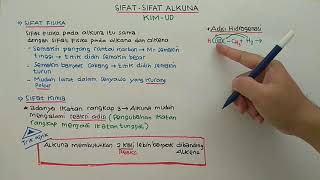 SIFAT-SIFAT ALKUNA
KIM-UD
→ SIFAT FISIKA
Sifat fisika pada alkuna itu sama
dengan sifat fisika pada alkana dan alkena
- Semakin panjang rantai karbon → Mr semakin
tinggi → titik didih semakin besar
- Semakin banyak cabang → titik didih semakin
turun
- Mudah larut dalam senyawa yang kurang
Polar
→ SIFAT KIMIA
- Adanya ikatan rangkap 3 → Alkuna mudah
mengalami reaksi adisi (Pengubahan ikatan
rangkap menjadi ikatan tunggal)
Trik Asyik
Alkuna membutuhkan 2 kali lebih banyak dibanding
Reaksi Alkena
• Adisi Hidrogenasi
HC≡C-CH₃ + H₂ →